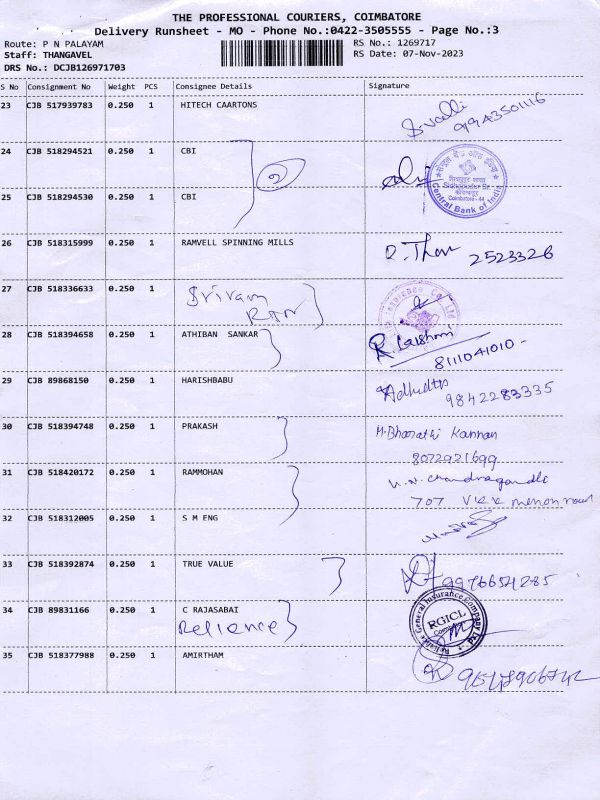 THE PROFESSIONAL COURIERS, COIMBATORE
Delivery Runsheet - MO - Phone No.:0422-3505555 - Page No.:3
Route: P N PALAYAM
RS No.: 1269717
Staff: THANGAVEL
RS Date: 07-Nov-2023
DRS No.: DCJB126971703
S No Consignment No Weight PCS Consignee Details Signature
23 CJB 517939783 0.250 1 HITECH CAARTONS
9943501116
24 CJB 518294521 0.250 1 CBI
2
Central Bank of India
Coimbatore - 44
25 CJB 518294530 0.250 1 CBI
26 CJB 518315999 0.250 1 RAMVELL SPINNING MILLS
2523326
27 CJB 518336633 0.250 1 Sriram
28 CJB 518394658 0.250 1 ATHIBAN SANKAR
R. Lakshmi
8111041010 -
29 CJB 89868150 0.250 1 HARISHBABU
9842283335
30 CJB 518394748 0.250 1 PRAKASH
M. Bharathi Kannan
8072921699
31 CJB 518420172 0.250 1 RAMMOHAN
707 VKK menon road
32 CJB 518312005 0.250 1 S M ENG
33 CJB 518392874 0.250 1 TRUE VALUE
9976654285
34 CJB 89831166 0.250 1 C RAJASABAI
Reliance
Reliance General Insurance Company Ltd.
RGICL
35 CJB 518377988 0.250 1 AMIRTHAM